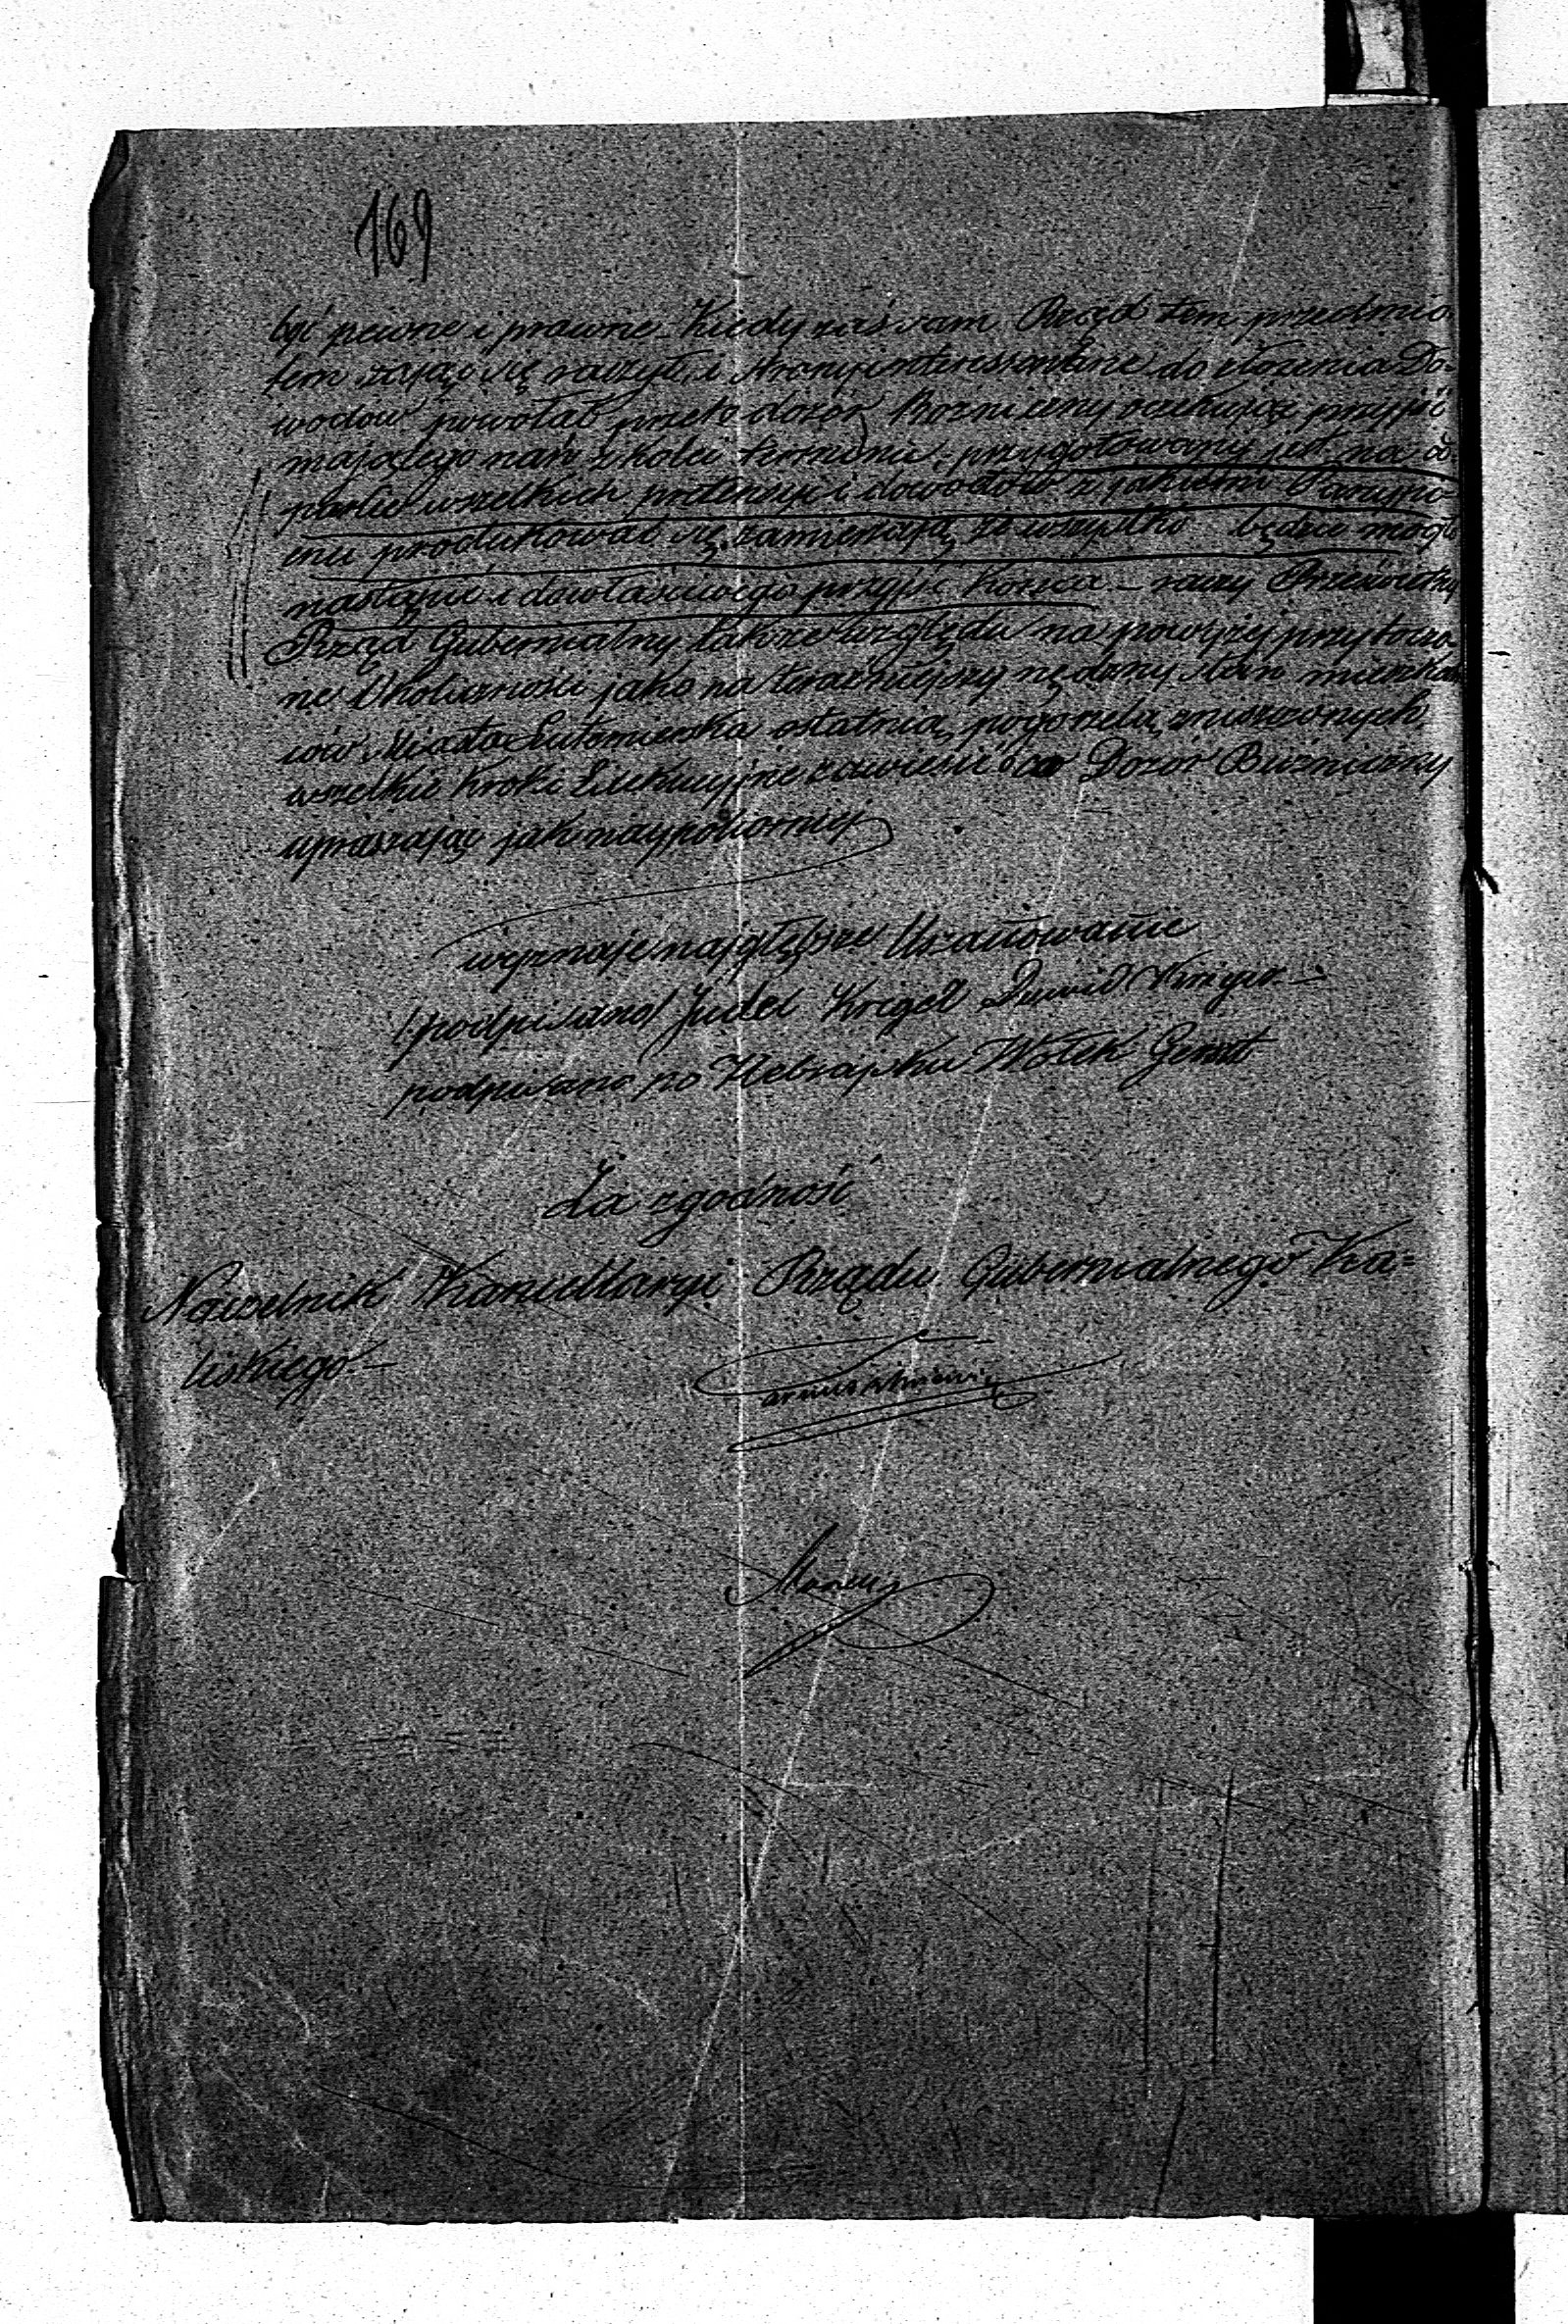 169
być pewne i prawne. Kiedy zaś sam Rząd tem przedmio
tem zająć się raczył i Strony interessowane do złożenia Do-
wodów powołał przeto dozór Bożniczny oczekując przyjść
mającego nań z kolei terminu, przygotowany jest na od
parcie wszelkich pretensyi i dowodów z jakiemi Parzyno-
mu produkować się zamierzają, co wszystko będzie mogło
nastąpić i do właściwego przyjść końca – raczy Prześwietny
Rząd Gubernialny także względu na powyżej przytoczo
ne Okoliczności jako na teraźniejszy nędzny stan mieszkań
ców Miasta Lutomierska ostatnią pogorzelą zniszczonych
wszelkie kroki Exekucyjne zawiesić o co Dozór Bużniczny
upraszając jak naypokorniey
wyznaje najgłębsze Uszanowanie
(podpisano) Judel Krigel Dawid Kinger –
podpisano po Hebrajsku Wołek Gemut
Za zgodność
Naczelnik Kancellaryi Rządu Gubernialnego Ka=
liskiego –